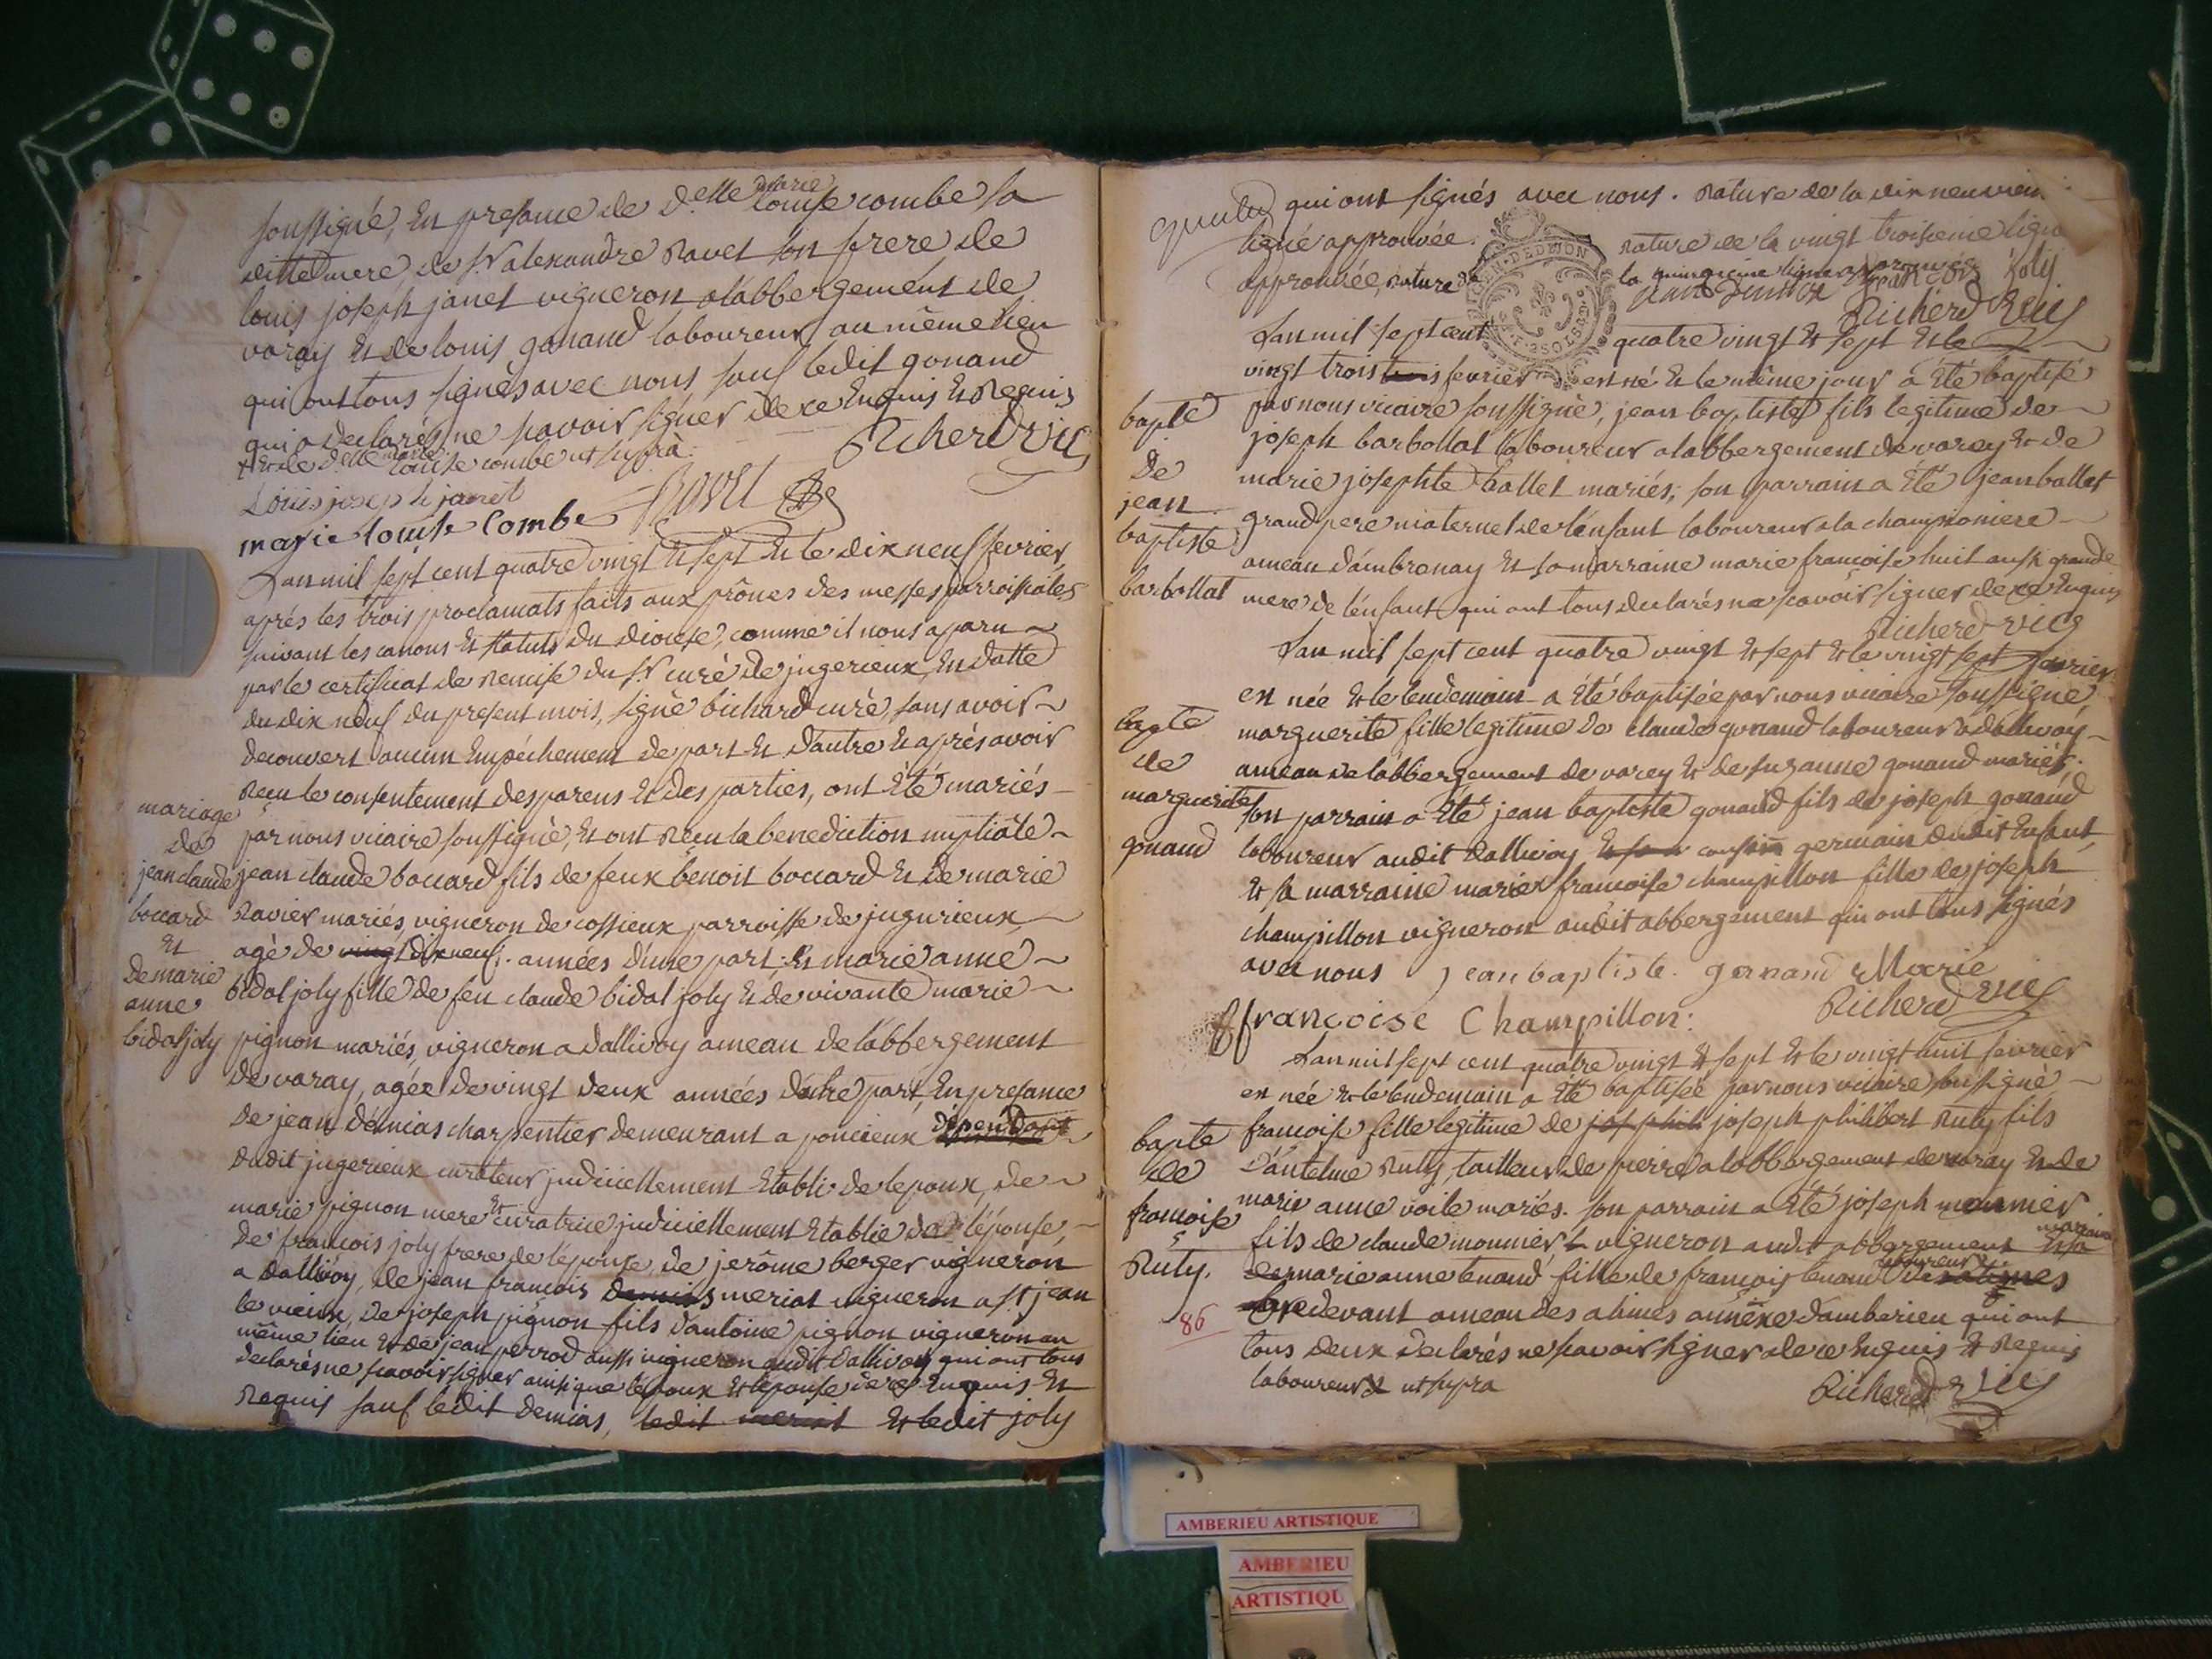 soussigné, En presance de d.elle marie louise combe sa
ditte mere, de s.r alexandre ravet son frere de
louis joseph janet vigneron a labbergement de
varay Et de louis gonand laboureur au même lieu
qui ont tous signés avec nous sauf ledit gonand
qui a declaré ne scavoir signer de ce Enquis Et Requis
Et de d.elle marie louise combe ut supra. Richerd vic
Louis joseph janet
marie louise Combe Ravet
Lan mil sept cent quatre vingt Et sept Et le dix neuf fevrier
aprés les trois proclamats faits aux prônes des messes parroissiales
suivant les canons Et statuts du diocese, comme il nous a paru
par le certificat de remise du s.r curé de jugerieux, En datte
du dix neuf du present mois, signé bichard curé, sans avoir
decouvert aucun Empéchement de part Et d'autre Et aprés avoir
recu le consentement des parens Et des parties, ont Eté mariés
mariage
de
jean claude
boccard
Et
de marie
anne
bidal joly
par nous vicaire soussigné, Et ont recu la benediction nuptiale
jean claude boccard fils de feux benoit boccard Et de marie
ravier mariés, vigneron de cossieux parroisse de jugurieux
agé de vingt dix neuf. années d'une part: Et marie anne
bidal joly fille de feu claude bidal joly Et de vivante marie
pignon mariés, vigneron a dallivoy ameau de labbergement
de varay, agée de vingt deux années d'autre part, En presance
de jean démias charpentier demeurant a poncieux dependant
dudit jugerieux curateur judiciellement Etabli de lepoux, de
marie pignon mere Et curatrice judiciellement Etablie de l'épouse,
de francois joly frere de l'épouse, de jerôme berger vigneron
a dallivoy, de jean francois demias meriat vigneron a s.t jean
le vieux, de joseph pignon fils d'antoine pignon vigneron au
même lieu Et de jean perrod aussi vigneron audit dallivoy qui ont tous
declarés ne scavoir signer ainsi que lepoux Et lepouse de ce Enquis Et
Requis sauf ledit demias, ledit meriat Et ledit joly
qui ont signés avec nous. rature de la dix neuvieme
ligne approuvée. rature de la vingt troisieme ligne
approuvée, rature de la quinzieme ligne approuvée
jean Demia francois Joly
Richerd vic
GEN. DE DIJON
Lan mil sept cent quatre vingt Et sept Et le
vingt trois trois fevrier est né Et le même jour a Eté baptisé
bapté
de
jean
baptiste
barbollat
par nous vicaire soussigné, jean baptiste fils legitime de
joseph barbollat laboureur a labbergement de varey Et de
marie josephte ballet mariés; son parrain a Eté jean ballet
grand pere maternel de l'enfant laboureur a la championiere
ameau d'ambrenay Et sa marraine marie francoise huit aussi grande
mere de l'enfant qui ont tous declarés ne scavoir signer de ce Enquis
Richerd vic
Lan mil sept cent quatre vingt Et sept Et le vingt sept fevrier
est née Et le lendemain a Eté baptisée par nous vicaire soussigné
bapte
de
marguerite
gonand
marguerite fille legitime de claude gonand laboureur a dallivoy
ameau de labbergement de varey Et de suzanne gonand mariés.
son parrain a Eté jean baptiste gonand fils de joseph gonand
laboureur audit dallivoy Et son cousin germain dudit Enfant,
Et sa marraine marie francoise champillon fille de joseph
champillon vigneron audit abbergement qui ont tous signés
avec nous jean baptiste. gonand Marie
francoise Champillon: Richerd vic
Lan mil sept cent quatre vingt Et sept Et le vingt huit fevrier
est née Et le lendemain a Eté baptisée par nous vicaire soussigné
bapte
de
francoise
Ruty.
86
francoise fille legitime de jos phili joseph philibert ruty fils
d'antelme ruty, tailleur de pierre a labbergement de varay Et de
marie anne voile mariés. son parrain a Eté joseph monnier
fils de claude monnier vigneron audit abbergement Et sa marraine
marie anne tenand fille de francois tenand laboureur des alimes
devant ameau des alimes annexe d'amberieu qui ont
tous deux declarés ne scavoir signer de ce Enquis Et Requis
laboureur ut supra Richerd vic
AMBERIEU ARTISTIQUE
AMBERIEU
ARTISTIQU